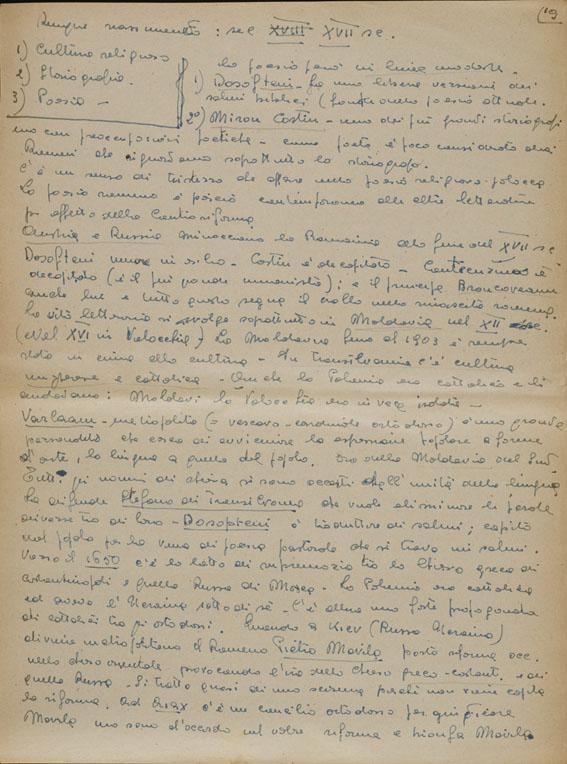 19
Dunque rinascimento : sec XVIII XVII sc.
1) Cultura religiosa
2) Storiografia.
3) Poesia —
la poesia però in linea modesta.
1) Dosofteni - fa una libera versione dei
salmi biblici
2º) Miron Costin - uno dei più grandi storiografi
ma con preoccupazioni poetiche - come poeta è poco considerato dai
Rumeni che riguardano soprattutto lo storiografo.
C'è un senso di tristezza che affiora nella poesia religiosa polacca
La poesia rumena è perciò contemporanea alle altre letterature
per effetto della Controriforma
Austria e Russia minacciano la Romania alla fine del XVII sc
Dosofteni muore in esilio. - Costin è decapitato - Cantacuzino è
decapitato (è il più grande umanista); e il principe Brancoveanu
anche lui e tutto questo segna il crollo della rinascita romena.
La vita letteraria si svolge soprattutto in Moldavia nel XII
(Nel XVI in Valacchia) La Moldavia fino al 1903 è sempre
stata in cima alla cultura - In Transilvania c'è cultura
ungherese e cattolica - Anche la Polonia era cattolica e lì
andavano i Moldavi. la Valacchia era invece isolata -
Varlaam - metropolita (= vescovo - cardinale ortodosso) è una grande
personalità che cerca di avvicinare la espressione popolare a forme
d'arte, la lingua a quella del popolo. Era della Moldavia del Sud
Tutti gli uomini di chiesa si sono accorti dell'unità della lingua
La difende Stefano di Transilvania che vuole eliminare le parole
diverse tra di loro - Dosofteni è traduttore di salmi; capito
nel popolo per la vena di poesia pastorale che si trova nei salmi.
Verso il 1650 c'è la lotta di supremazia tra la Chiesa greca di
Costantinopoli e quella Russa di Mosca. - La Polonia era cattolica
ed aveva l'Ucraina sotto di sè - C'è allora una forte propaganda
di cattolici tra gli ortodossi. Quando a Kiev (Russa Ucraina)
diviene metropolitano il Rumeno Pietro Movila portò riforma occ.
nella chiesa orientale provocando l'ira della Chiesa greco-costant. e di
quella Russa - Si tratta quasi di uno scisma perchè non viene capita
la riforma. Ad c'è un concilio ortodosso per giudicare
Movila ma sono d'accordo nel voler riforma e trionfa Movila